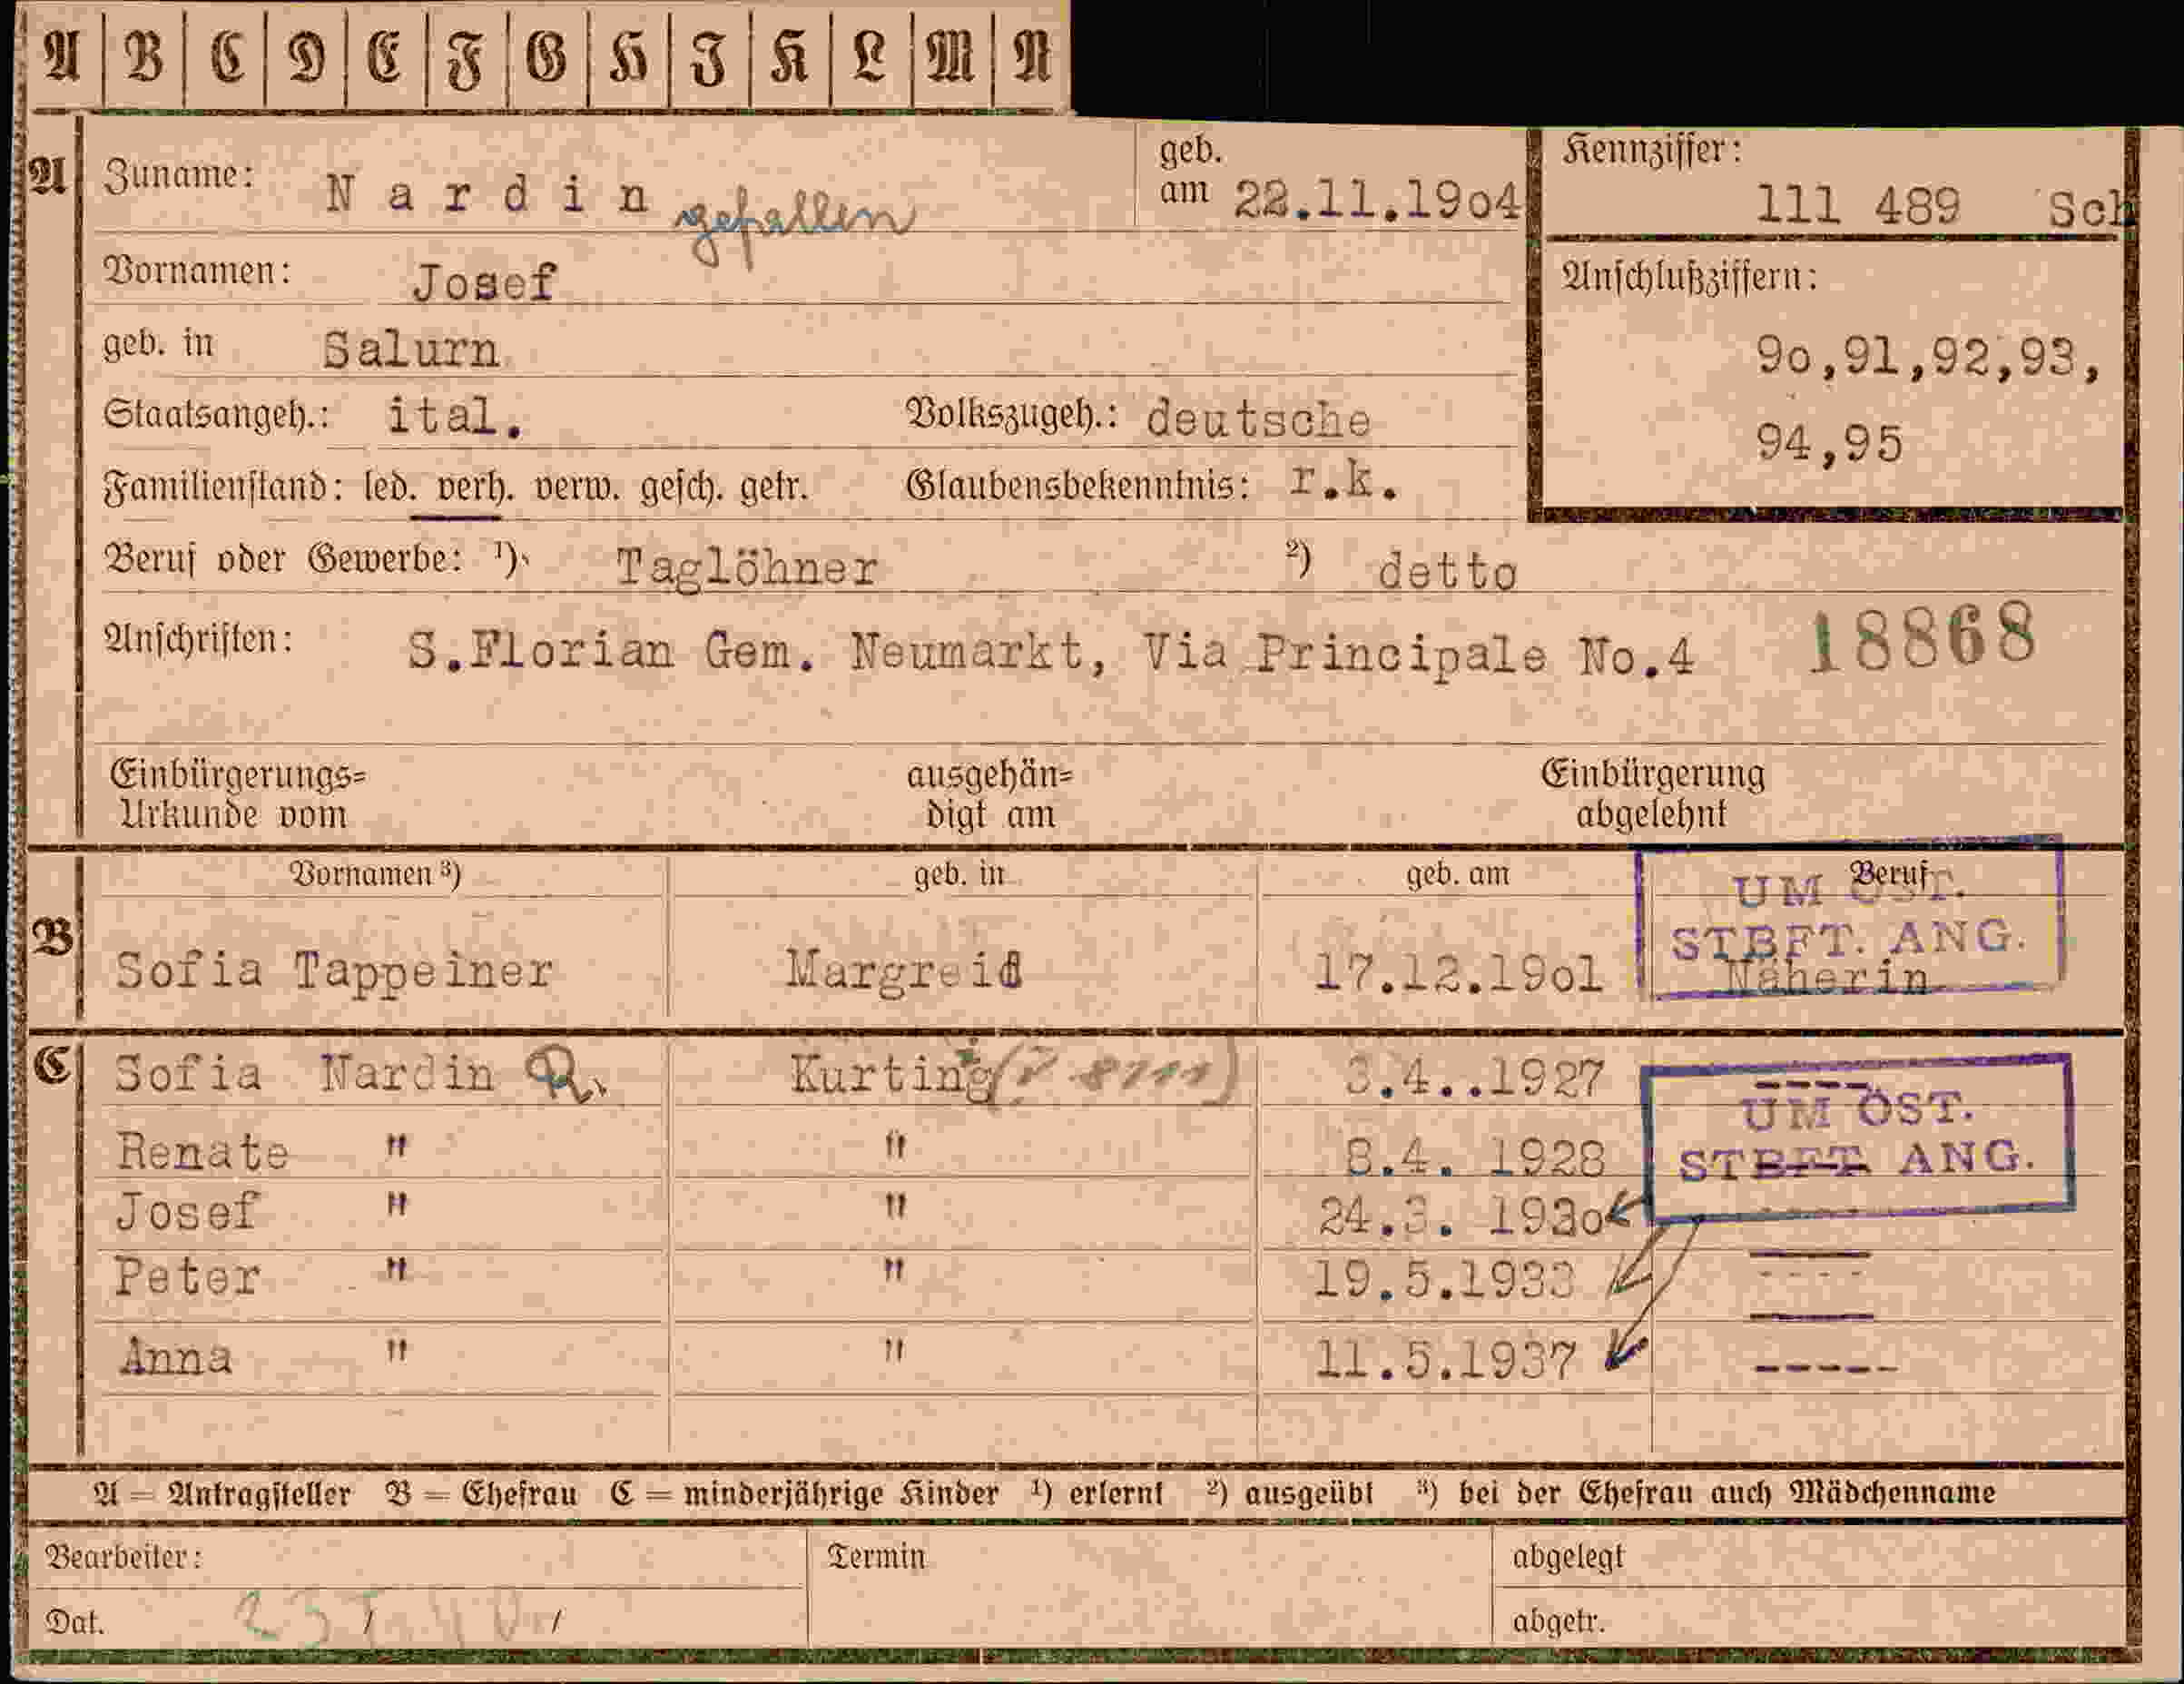 A B C D E F G H I K L M N
A Zuname: Nardin gefallen geb. am 22.11.19o4 Kennziffer: 111 489 Sch
Vornamen: Josef Anschlußziffern:
geb. in Salurn 9o,91,92,93,
Staatsangeh.: ital. Volkszugeh.: deutsche 94,95
Familienstand: led. verh. verw. gesch. getr. Glaubensbekenntnis: r.k.
Beruf oder Gewerbe: ¹) Taglöhner ²) detto
Anschriften: S.Florian Gem. Neumarkt, Via Principale No.4 18868
Einbürgerungs= ausgehän= Einbürgerung
Urkunde vom digt am abgelehnt
Vornamen ³) geb. in geb. am Beruf
UM ÖST.
STBFT. ANG.
B Sofia Tappeiner Margreid 17.12.19o1 Näherin
C Sofia Nardin R. Kurtinig 3.4..1927
UM ÖST.
Renate " " 8.4. 1928
STBFT. ANG.
Josef " " 24.3. 193o
Peter " " 19.5.1933
Anna " " 11.5.1937
A = Antragsteller B = Ehefrau C = minderjährige Kinder ¹) erlernt ²) ausgeübt ³) bei der Ehefrau auch Mädchenname
Bearbeiter: Termin abgelegt
Dat. / / abgetr.